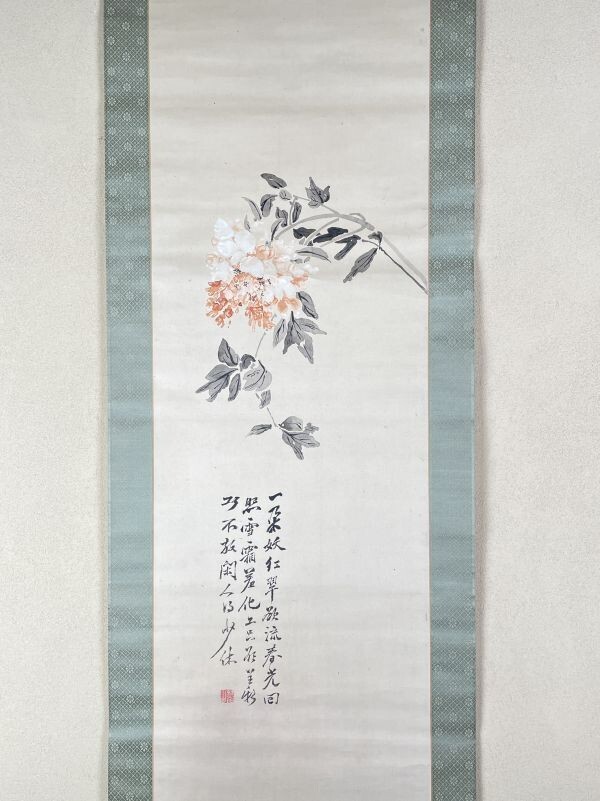 一朶妖紅翠欲流春光回
照雪霜羞化工只欲呈新
巧不放閑人得少休